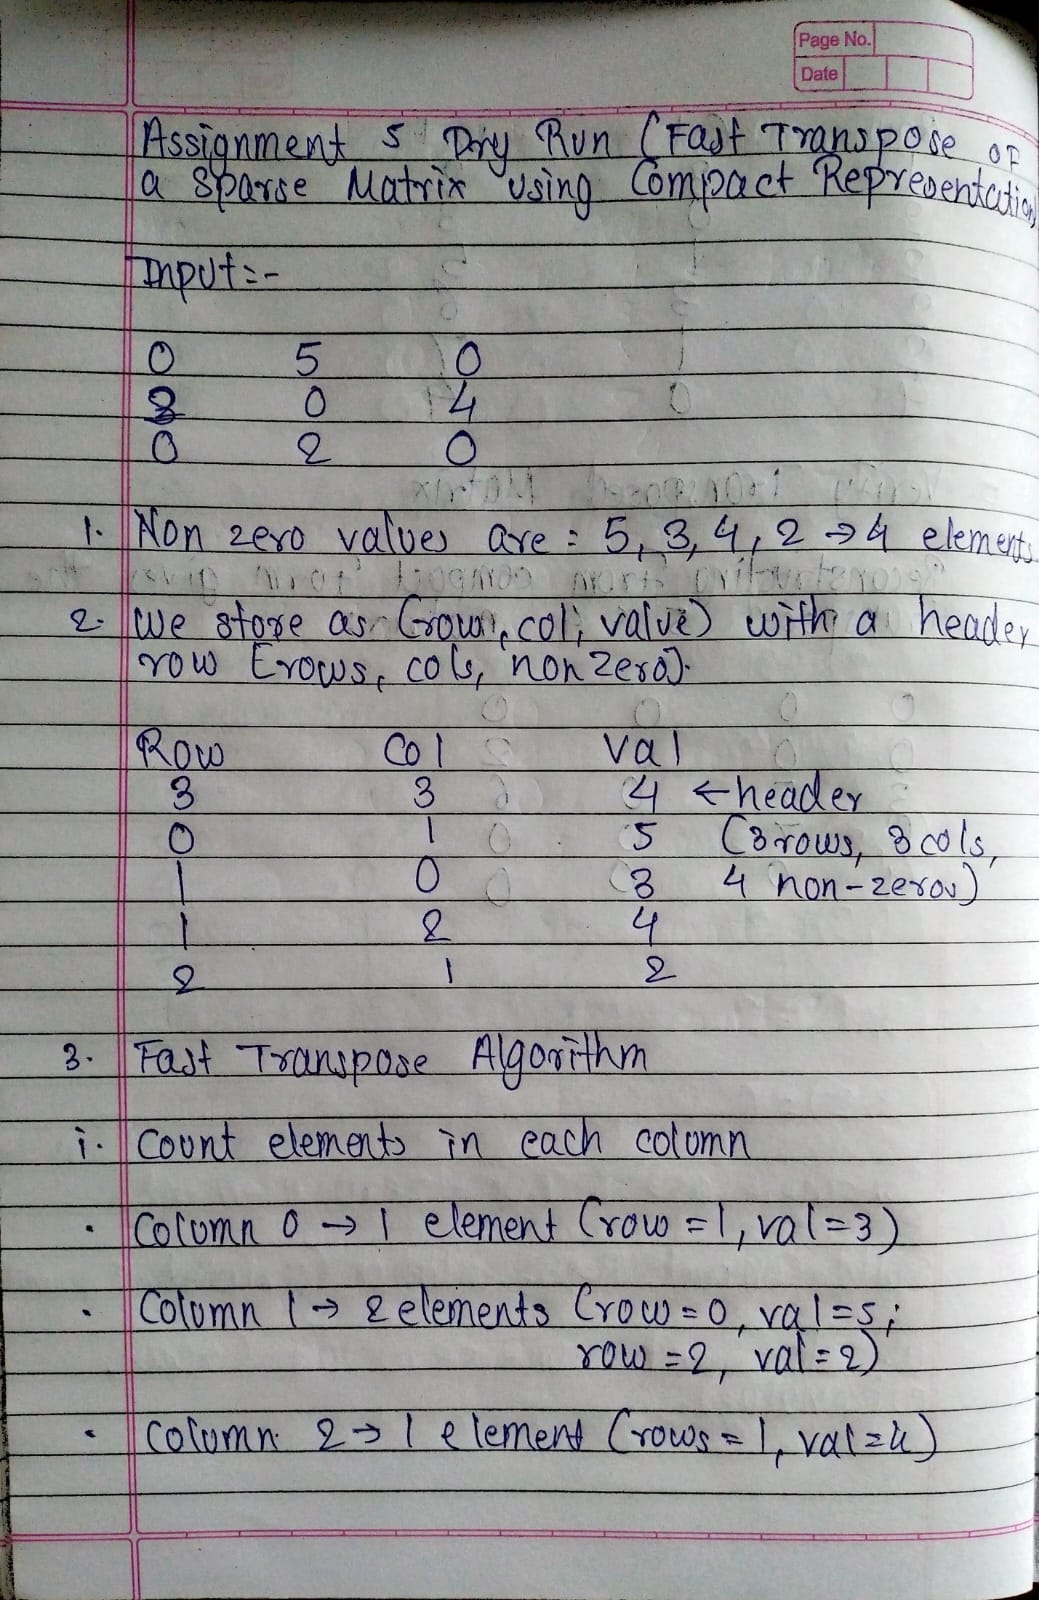 Page No.
Date
Assignment 5 Dry Run (Fast Transpose of
a Sparse Matrix using Compact Representation)
Input:-
0 5 0
3 0 4
0 2 0
1. Non zero values are : 5, 3, 4, 2 → 4 elements
2. We store as (row, col, value) with a header
row [rows, cols, nonzero].
Row Col Val
3 3 4 ← header
0 1 5 (3 rows, 3 cols,
1 0 3 4 non-zeros)
1 2 4
2 1 2
3. Fast Transpose Algorithm
i. Count elements in each column
• Column 0 → 1 element (row = 1, val = 3)
• Column 1 → 2 elements (row = 0, val = 5;
row = 2, val = 2)
• Column 2 → 1 element (rows = 1, val = 4)